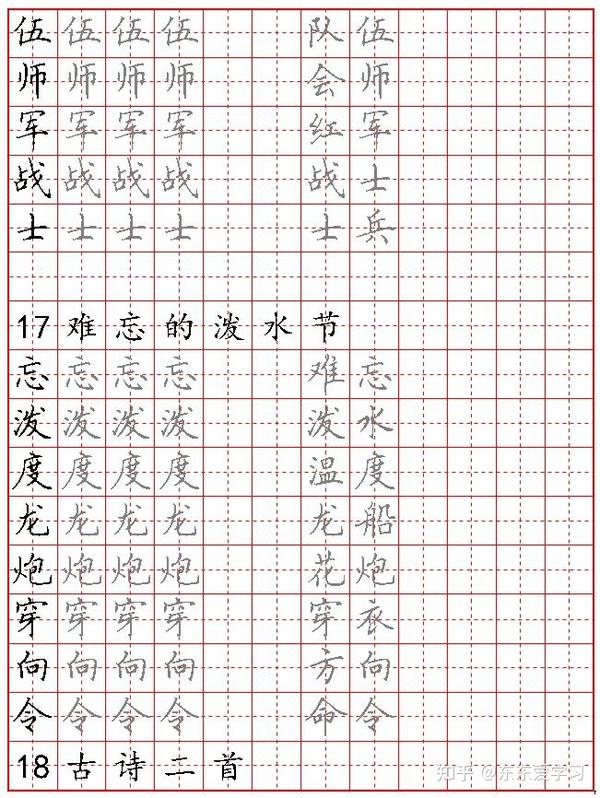 伍伍伍伍 队伍
师师师师 会师
军军军军 红军
战战战战 战士
士士士士 士兵
17难忘的泼水节
忘忘忘忘 难忘
泼泼泼泼 泼水
度度度度 温度
龙龙龙龙 龙船
炮炮炮炮 花炮
穿穿穿穿 穿衣
向向向向 方向
令令令令 命令
18古诗二首
知乎 @东东爱学习